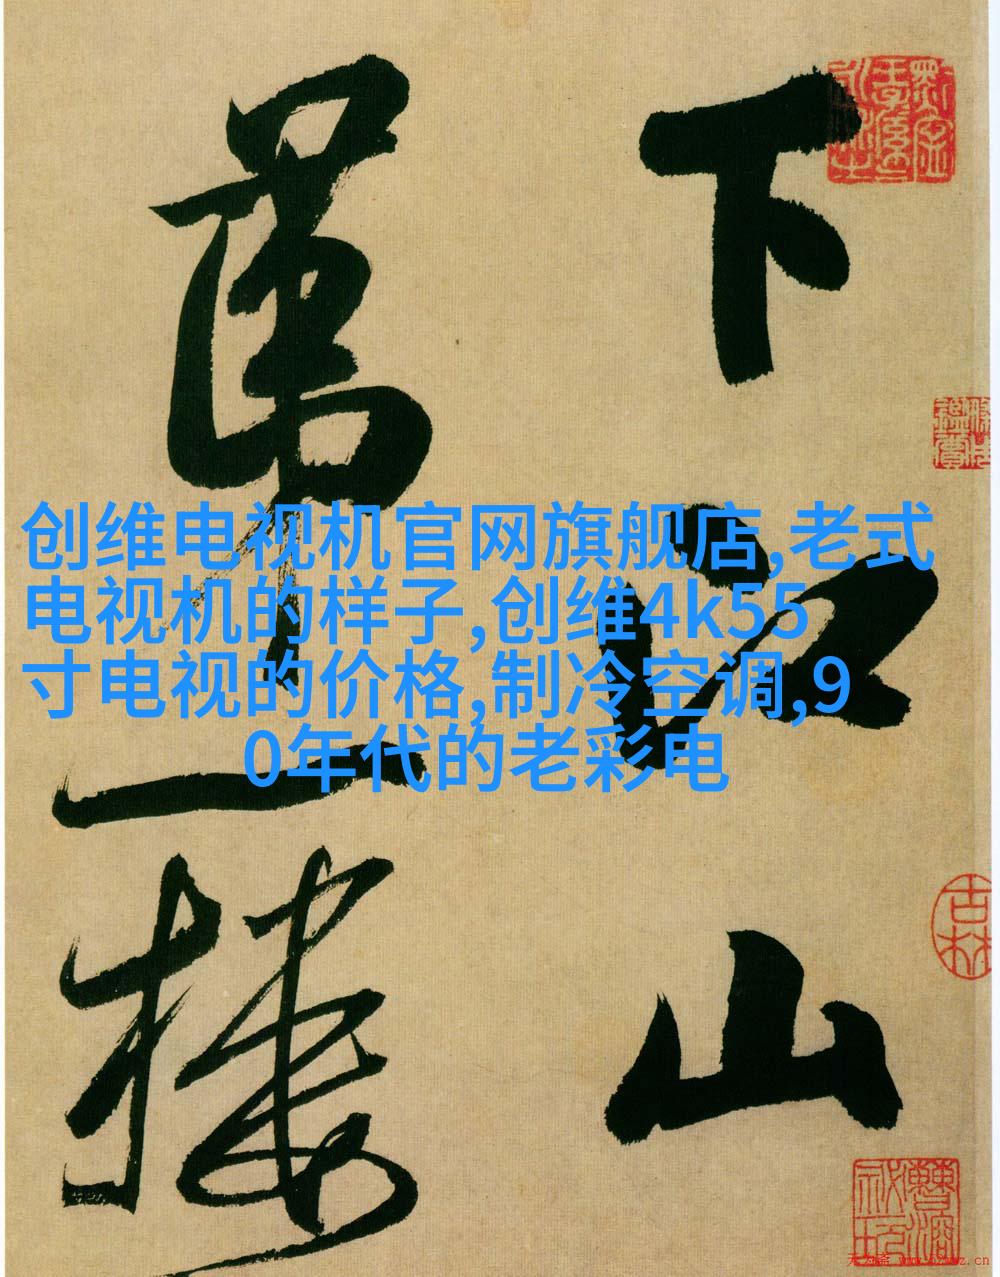 下江山
第一樓
创维电视机官网旗舰店,老式
电视机的样子,创维4k55
寸电视的价格,制冷空调,9
0年代的老彩电